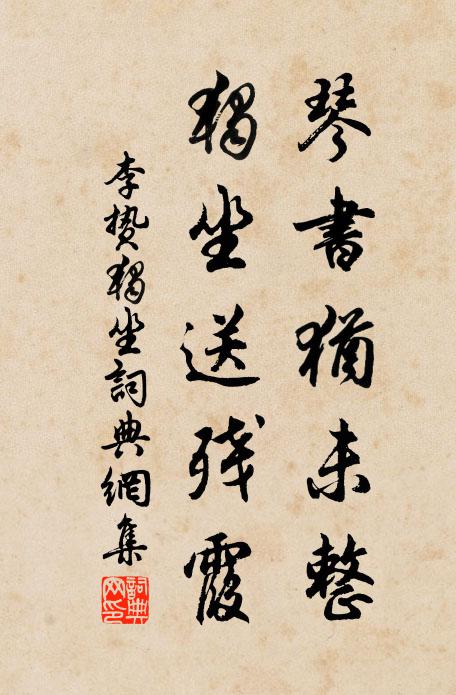 琴書猶未整
獨坐送殘霞
李贄獨坐詞典網集
詞典網印